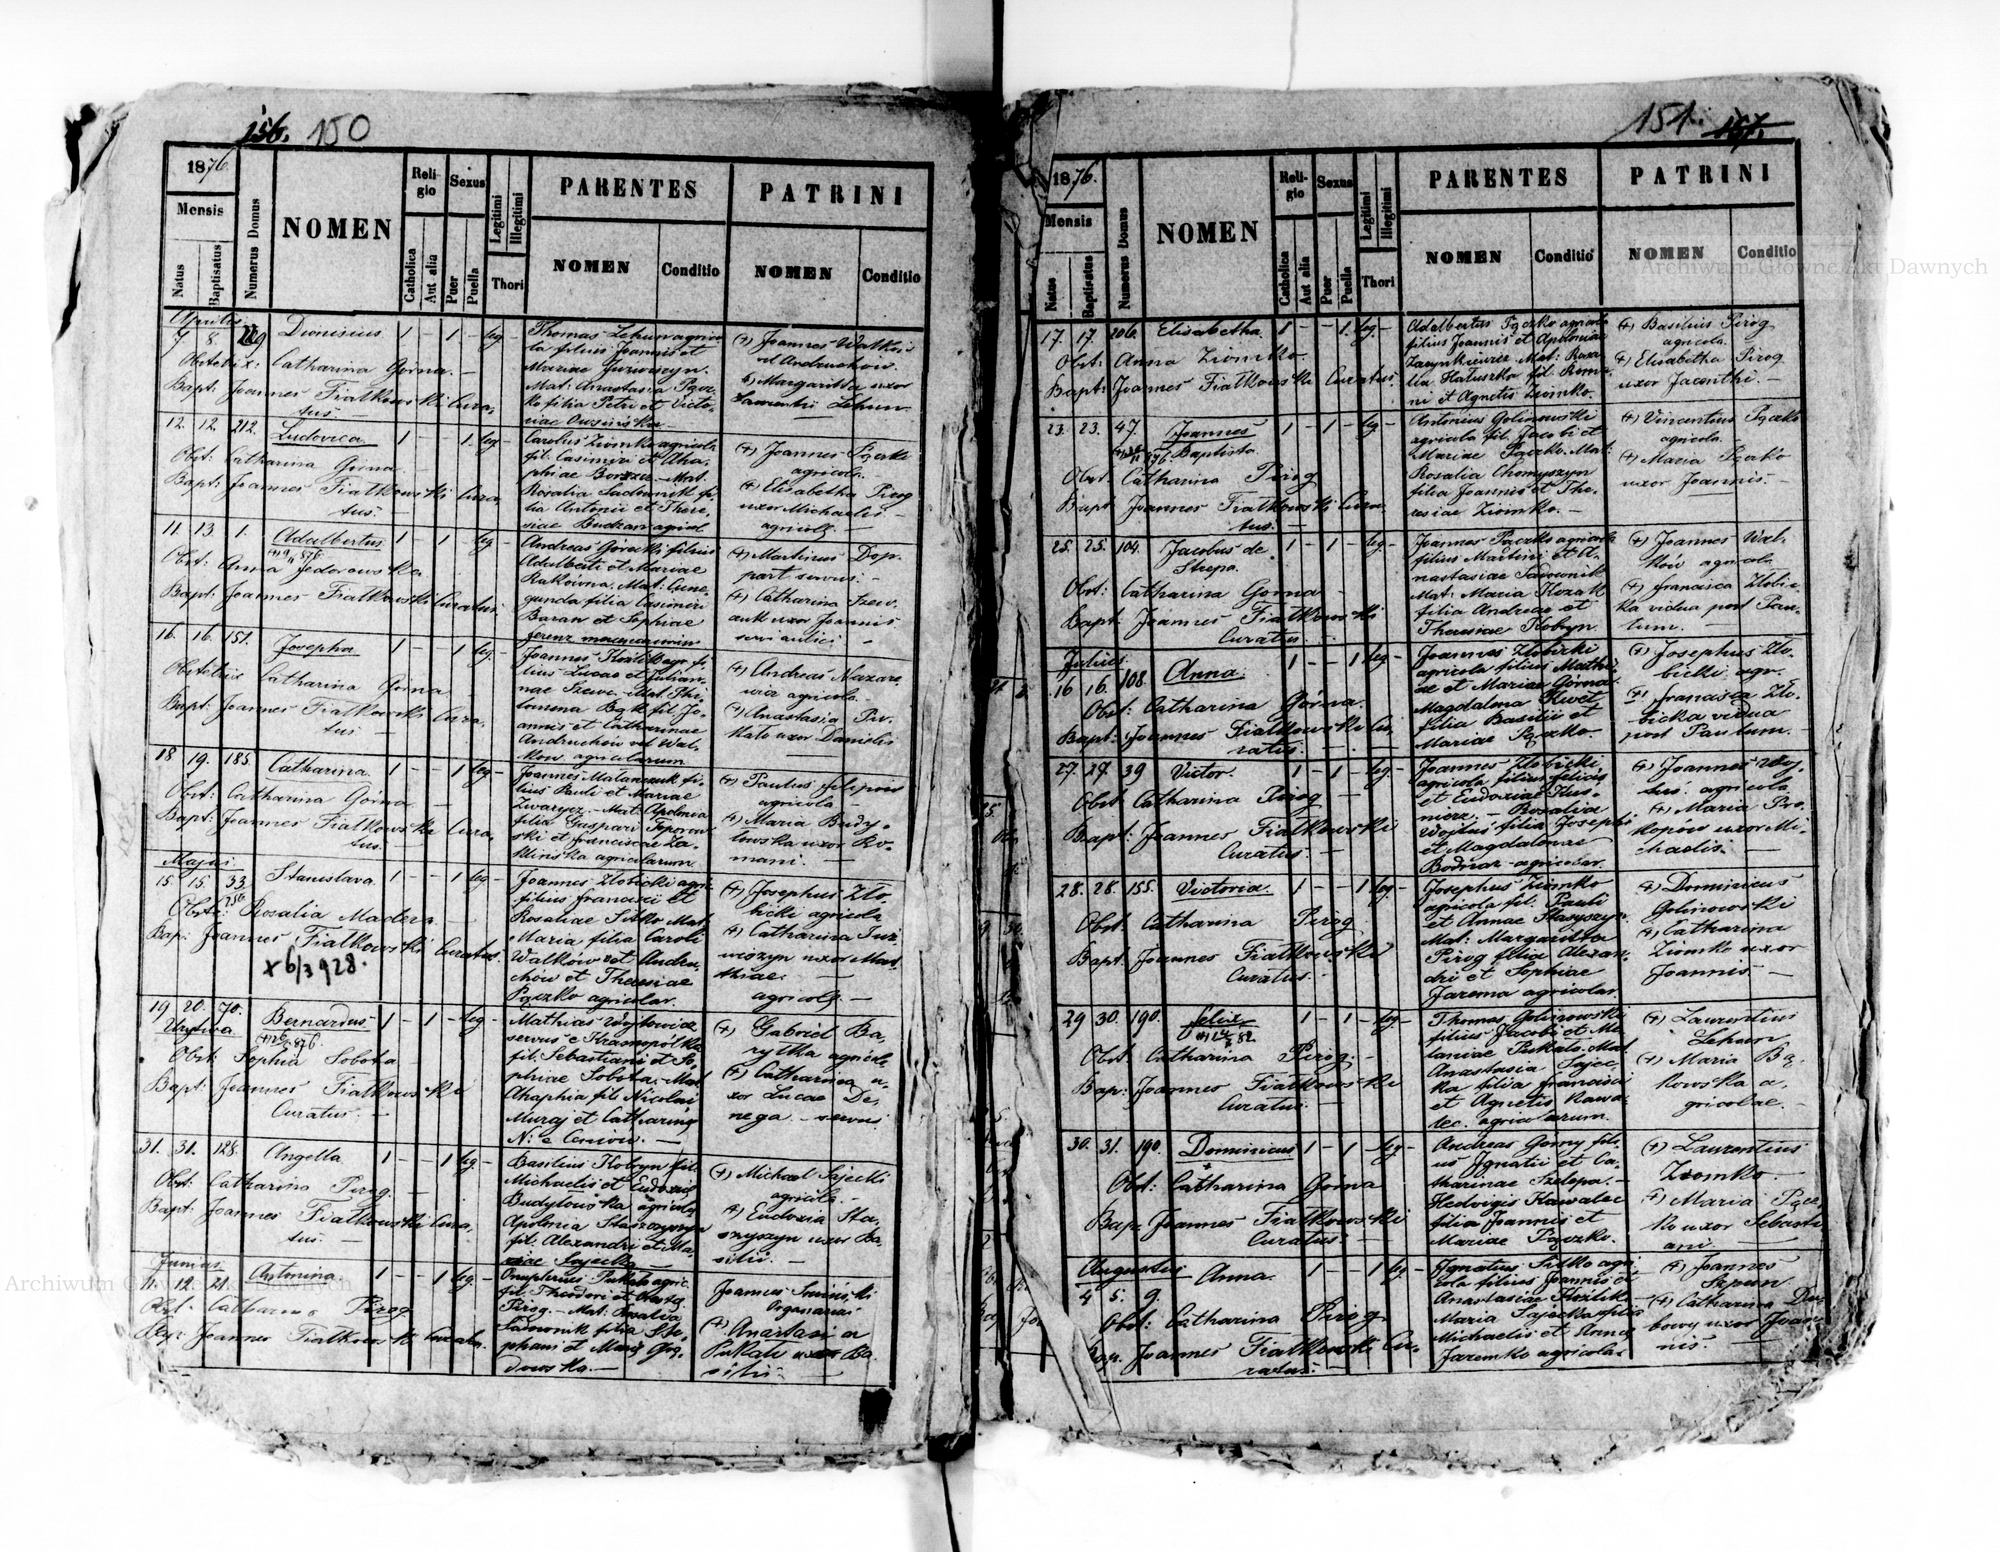 156. 150
1876.
Mensis
Natus
Baptisatus
Numerus Domus
NOMEN
Religio
Catholica
Aut alia
Sexus
Puer
Puella
Legitimi
Illegitimi
Thori
PARENTES
NOMEN
Conditio
PATRINI
NOMEN
Conditio
Aprilis
7 8. Dionisius 1 - 1 - leg -
Obstetrix: Catharina Górna. -
Bapt: Joannes Fiałkowski Cura,
tus
Thomas Lehun agrico
la filius Joannis et
Mariae
Mat: Anastasia Pącz
ko filia Petri et Victo-
riae
(+) Joannes Walków
vel Andruchow.
(+) Margaritta uxor
Laurentii Lehun
12. 12. 212. Ludovica 1 - - 1. leg -
Obst: Catharina Górna.
Bapt: Joannes Fiałkowski Cura,
tus. -
Carolus Ziomko agricola
fil: Casimiri et Aha-
phiae - Mat.
Rosalia Sadownik fi-
lia Antonii et There-
siae agricol.
(+) Joannes Pączko
agricola.
(+) Elisabetha Pirog
uxor Michaelis -
agricolę. -
11. 13. 1. Adalbertus 1 - 1 - leg -
Obst: Anna Fedorowska
Bapt: Joannes Fiałkowski Curatus.
Andreas Górecki filius
Adalberti et Mariae
Rakówna. Mat: Cune-
gunda filia Casimiri
Baran et Sophiae
(+) Martinus Dop.
part servus. -
(+) Catharina Szew.
uxor Joannis
servi aulici -
16. 16. 151. Josepha 1 - - 1 leg. -
Obstetrix Catharina Górna
Bapt: Joannes Fiałkowski Cura,
tus -
Joannes agr. fi-
lius Lucae et Julian-
nae Szewc. Mat. Phi-
lomena Bąk fil. Jo-
annis et Catharinae
Andruchow vel Wal-
kow agricolarum
(+) Andreas Nazare
wicz agricola. -
(+) Anastasia Pu-
kało uxor Danielis
18 19. 185. Catharina. 1 - - 1 leg -
Obst: Catharina Górna -
Bapt: Joannes Fiałkowski Cura,
tus.
Joannes Malanczuk fi-
lius Pauli et Mariae
Zwarycz. - Mat: Apolonia
filia Gaspari Toporow
ski et franciscae Za-
klinska agricolarum
(+) Paulus filipow
agricola -
(+) Maria Budy-
lowska uxor Ro-
mani. -
Majus.
15. 15. 33. Stanislava. 1 - - 1 leg -
Obst: Rosalia Madera -
Bap: Joannes Fiałkowski Curatus.
x 6/3 928.
Joannes Złobicki agri
filius francisci et
Rosaliae Sitko Mat
Maria filia Caroli
Walków vel Andru-
chów et Theresiae
Pączko agricolar.
(+) Josephus Zło-
bicki agricola
(+) Catharina Jur
wiszyn uxor Mat-
thiae. -
agricolę. -
19 20. 70. Bernardus 1 - 1 - leg -
Obst: Sophia Sobota -
Bapt: Joannes Fiałkowski
Curatus. -
Mathias Wojtowicz
servus e Krasnopolka
fil. Sebastiani et So-
phiae Sobota. Mat
Ahaphia fil: Nicolai
Muraj et Catharinę
(+) Gabriel Ba-
ryłka agricola
(+) Catharina u-
xor Lucae De-
nega - servus
31. 31. 128. Angella 1 - - 1 leg -
Obst: Catharina Pirog. -
Bapt: Joannes Fiałkowski Cura,
tus. -
Basilius Kobryn fil.
Michaelis et Eudoxiae
Budyłowska agricola
Apolonia Staszyszyn
fil. Alexandri et Ma-
riae Sajecka
(+) Michael Sajecki
agricola. -
(+) Eudoxia Sta-
szyszyn uxor Ba,
silii. -
Junius
11. 12. 21. Antonina. 1 - - 1 leg. -
Obst. Catharina Pirog
Bap: Joannes Fiałkowski Curatus.
Onuphrius Pukało agric.
fil. Theodori et
Pirog. - Mat: Rosalia
Sadownik filia Ste-
phani et
Joannes
Organarius
(+) Anastasia
Pukało uxor Ba
silii -
151. 157.
1876.
Mensis
Natus
Baptisatus
Numerus Domus
NOMEN
Religio
Catholica
Aut alia
Sexus
Puer
Puella
Legitimi
Illegitimi
Thori
PARENTES
NOMEN
Conditio
PATRINI
NOMEN
Conditio
17. 17. 206. Elisabetha 1 - - 1. leg. -
Obst: Anna Ziomko.
Bapt: Joannes Fiałkowski Curatus.
Adalbertus Pączko agricola
filius Joannis et Apoloniae
Zazynkiewicz. Mat: Rosa
lia Hałuszka fil. Rom-
ni et Agnetis Ziomko.
(+) Basilius Pirog
agricola.
(+) Elisabetha Pirog
uxor Jacenthi. -
23. 23. 47 Joannes 1 - 1 - leg -
Baptista.
Obst: Catharina Pirog
Bapt Joannes Fiałkowski Cura-
tus. -
Antonius Golinowski
agricola fil. Jacobi et
Mariae Pączko. Mat:
Rosalia Chomyszyn
filia Joannis et The-
resiae Ziomko. -
(+) Vincentius Pączko
agricola.
(+) Maria Pączko
uxor Joannis. -
25. 25. 104. Jacobus de 1 - 1 - leg -
Strepa.
Obst: Catharina Gorna -
Bapt. Joannes Fiałkowski
Curatus. -
Joannes Pączko agricola
filius Martini et A-
nastasiae Sadownik
Mat: Maria Kozak
filia Andreae et
Theresiae Kobryn
(+) Joannes Wal-
ków agricola
(+) francisca Złobic-
ka vidua post Pau-
lum. -
Julius.
16 16. 108. Anna. 1 - - 1 leg -
Obst: Catharina Górna.
Bapt: Joannes Fiałkowski Cu,
ratus. -
Joannes Złobicki
agricola filius Mathi-
ae et Mariae Górna.
Magdalena Kwet
filia Basilii et
Mariae Pączko. -
(+) Josephus Zło
bicki agr.
(+) francisca Zło-
bicka vidua
post Paulum. -
27. 27. 39 Victor. 1 - 1 - leg -
Obst Catharina Pirog -
Bapt: Joannes Fiałkowski
Curatus. -
Joannes Złobicki
agricola filius felicis
et Eudoxiae
- Rosalia
Wojtus filia Josephi
et Magdalenae
Bodnar agricolar.
(+) Joannes Woj-
tus. agricola
(+) Maria Pro-
kopów uxor Mi-
chaelis. -
28. 28. 155. Victoria. 1 - - 1 leg -
Obst. Catharina Pirog
Bapt. Joannes Fiałkowski
Curatus. -
Josephus Ziomko
agricola fil. Pauli
et Annae Stasyszyn
Mat: Margaritta
Pirog filia Alexan-
dri et Sophiae
Jarema agricolar.
(+) Dominicus
Golinowski
(+) Catharina
Ziomko uxor
Joannis -
29 30. 190. felix 1 - 1 - leg -
Obst. Catharina Pirog. -
Bap: Joannes Fiałkowski
Curatus. -
Thomas Golinowski
filius Jacobi et Me-
laniae Pukało. Mat
Anastasia Sajec,
ka filia francisci
et Agnetis Kawa-
lec. agricolarum.
(+) Laurentius
Lehun
(+) Maria Bą-
kowska a,
gricolae. -
30. 31. 190. Dominicus 1 - 1 - leg -
Obst: Catharina Gorna
Bap: Joannes Fiałkowski
Curatus. -
Andreas Górny fili-
us Ignatii et Ca-
tharinae Szelepa. -
Hedvigis Kawalec
filia Joannis et
Mariae Pączko.
(+) Laurentius
Ziomko. -
(+) Maria Pącz,
ko uxor Sebasti
ani. -
Augustus
4 5. 9. Anna. 1 - - 1 leg -
Obst: Catharina Pirog
Bap. Joannes Fiałkowski Cu-
ratus. -
Ignatius Sitko agri-
cola filius Joannis et
Anastasiae
Maria Sajecka filia
Michaelis et
Jaremko agricolar
(+) Joannes
Sapun
(+) Catharina
uxor Joan-
nis. -
Archiwum Główne Akt Dawnych
Archiwum Główne Akt Dawnych